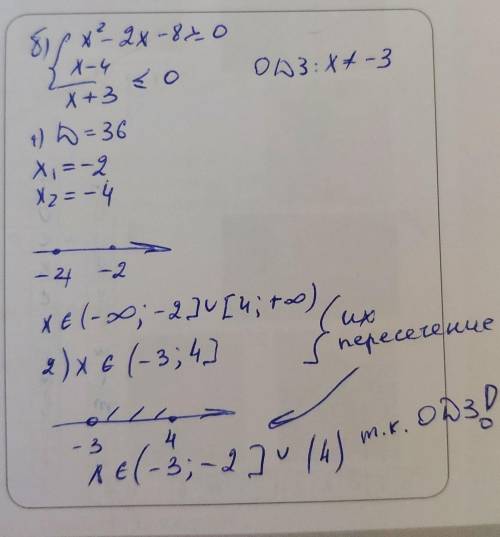 б) { x² - 2x - 8 ≥ 0
x-4 / x+3 ≤ 0 ОДЗ: x ≠ -3
1) D = 36
x₁ = -2
x₂ = -4
-4 -2
x ∈ (-∞; -2] ∪ [4; +∞)
2) x ∈ (-3; 4]
их
пересечение
-3 4
x ∈ (-3; -2] ∪ (4) т.к. ОДЗ